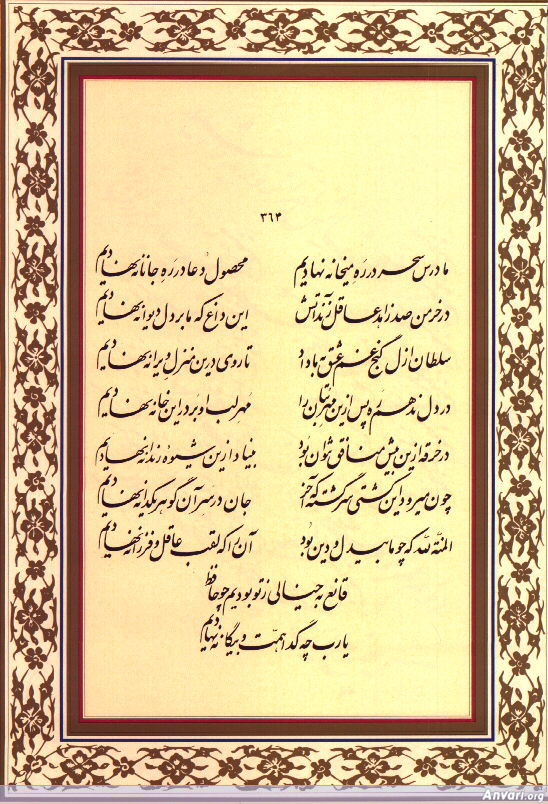 ۳۶۴
ما درس سحر در ره میخانه نهادیم محصول دعا در ره جانانه نهادیم
در خرمن صد زاهد عاقل زند آتش این داغ که ما بر دل دیوانه نهادیم
سلطان ازل گنج غم عشق به ما داد تا روی درین منزل ویرانه نهادیم
در دل ندهم ره پس ازین مهر بتان را مهر لب او بر در این خانه نهادیم
در خرقه ازین بیش منافق نتوان بود بنیاد ازین شیوه رندانه نهادیم
چون میرود این کشتی سرگشته که آخر جان در سر آن گوهر یکدانه نهادیم
المنة لله که چو ما بیدل و دین بود آن را که لقب عاقل و فرزانه نهادیم
قانع به خیالی ز تو بودیم چو حافظ
یارب چه گداهمت و بیگانه نهادیم
Anvari.org